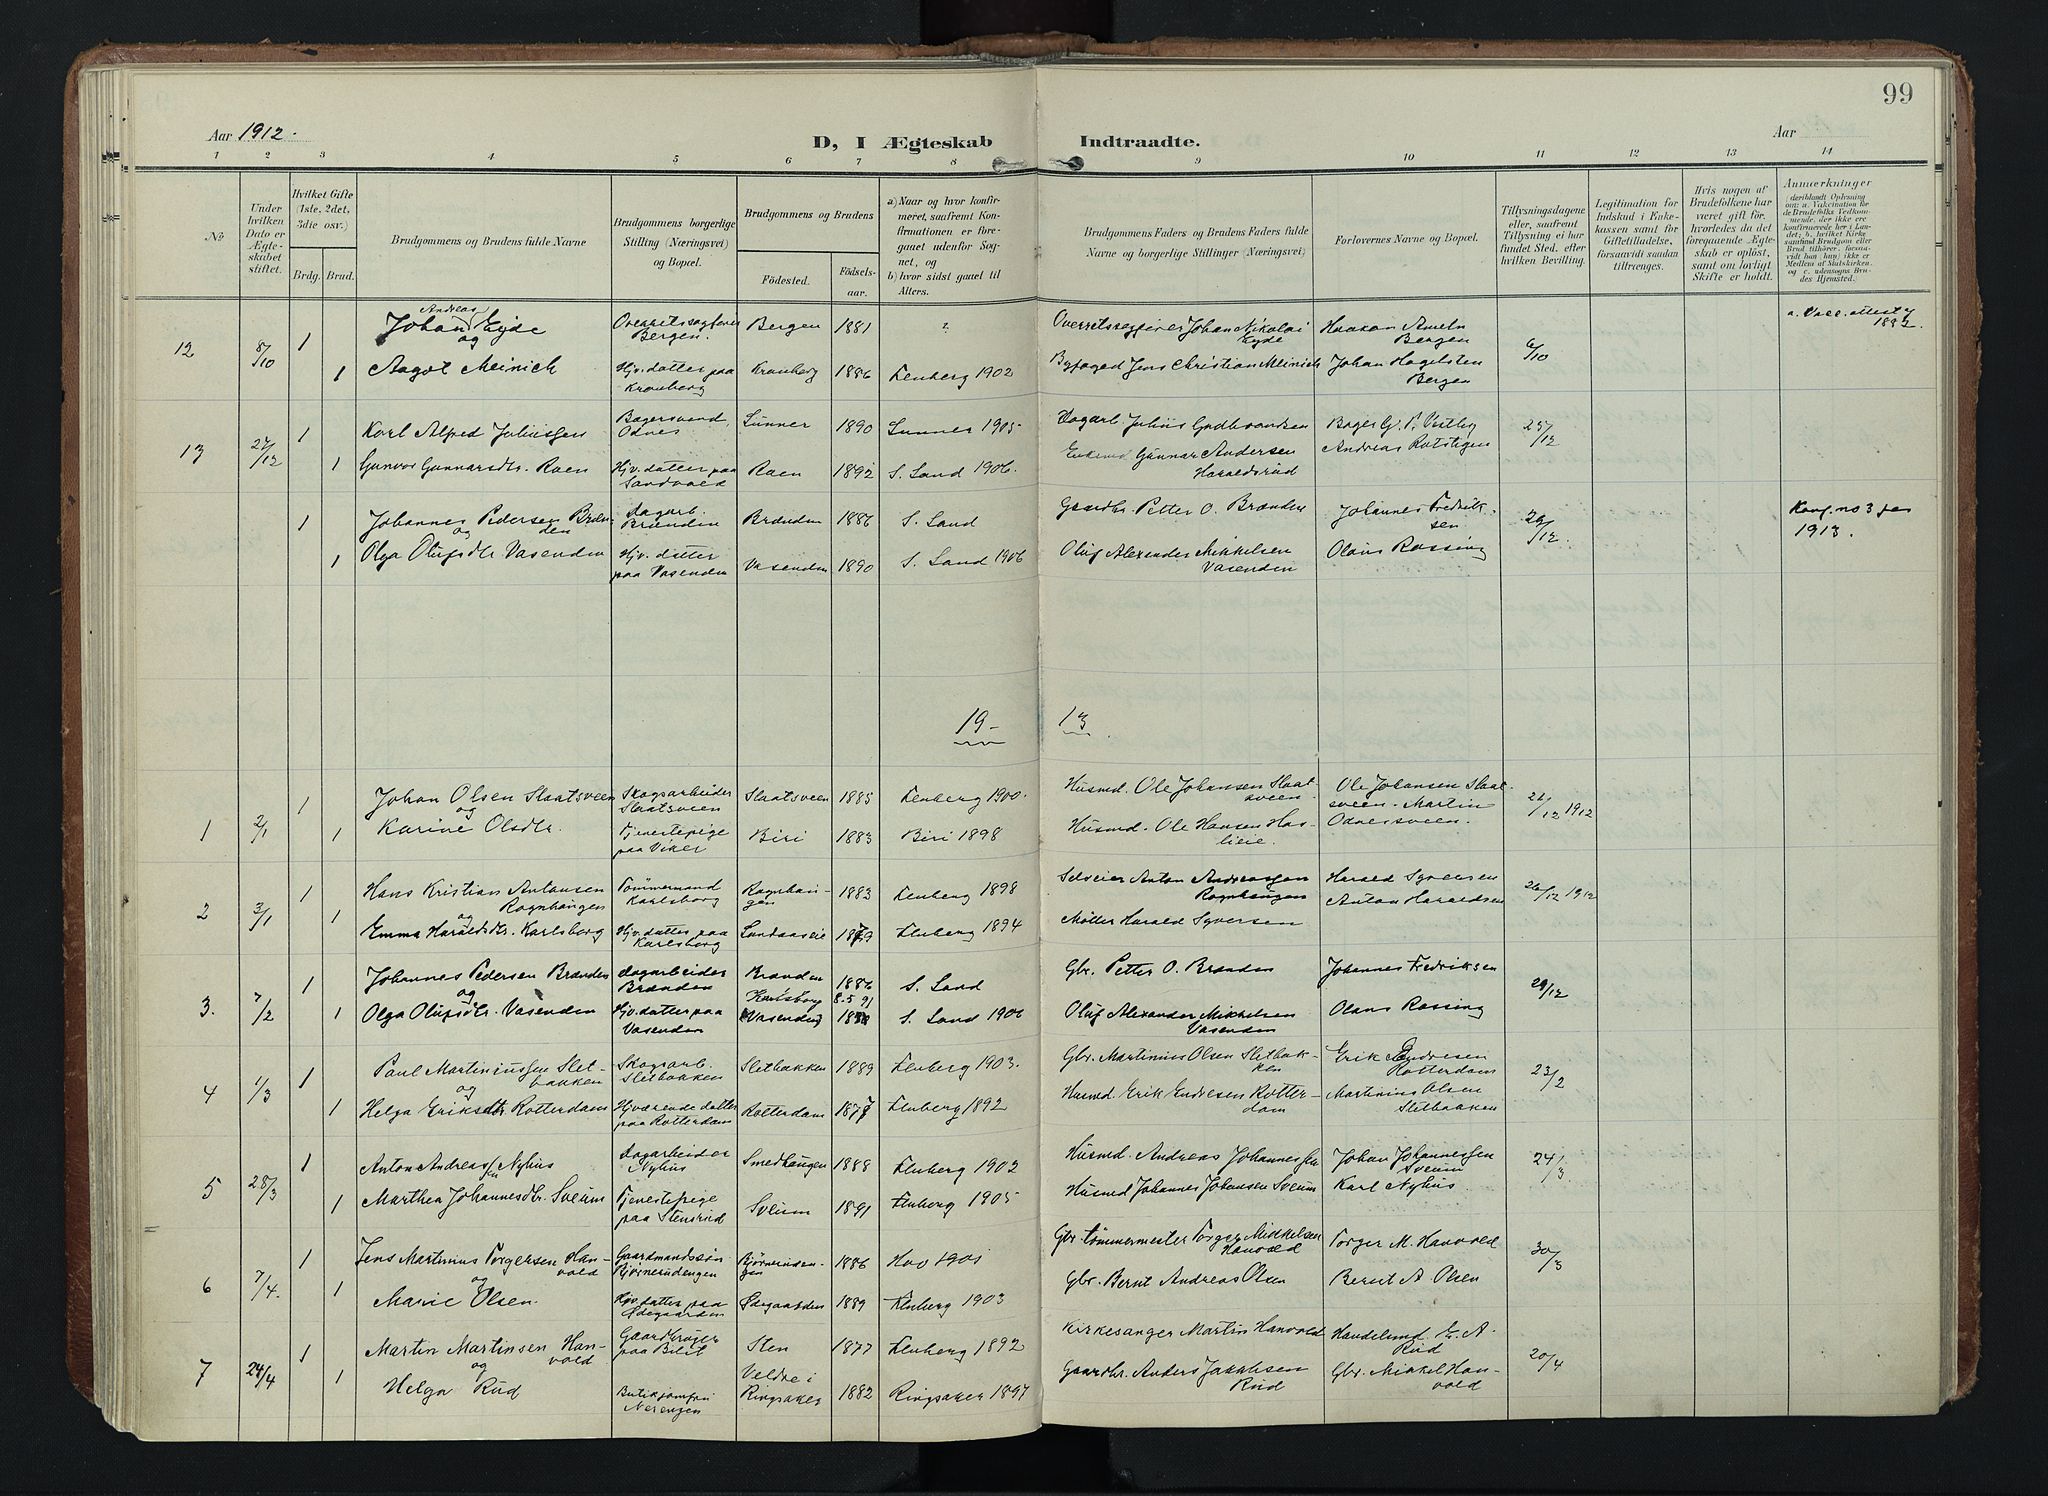 99
Aar 1912.
D, I Ægteskab Indtraadte.
Aar
1 2 3 4 5 6 7 8 9 10 11 12 13 14
No
Under hvilken Dato er Ægteskabet stiftet.
Hvilket Gifte (1ste, 2det, 3die osv.)
Brdg. Brud.
Brudgommens og Brudens fulde Navne
Brudgommens borgerlige Stilling (Næringsvei) og Bopæl.
Brudgommens og Brudens
Fødested.
Fødselsaar.
a) Naar og hvor konfirmeret, saafremt Konfirmationen er foregaaet udenfor Sognet, og
b) hvor sidst gaaet til Alters.
Brudgommens Faders og Brudens Faders fulde Navne og borgerlige Stillinger (Næringsvei)
Forlovernes Navne og Bopæl.
Tillysningsdagene eller, saafremt Tillysning ei har fundet Sted, efter hvilken Bevilling.
Legitimation for Indskud i Enkekassen samt for Giftetilladelse, forsaavidt saadan tiltrænges.
Hvis nogen af Brudefolkene har været gift før, hvorledes da det foregaaende Ægteskab er opløst, samt om lovligt Skifte er holdt.
Anmerkninger
deriblandt Oplysning om: a. Vakcination for de Brudefolks Vedkommende, der ikke ere konfirmerede her i Landet; b. hvilket Kirkesamfund Brudgom eller Brud tilhører, forsaavidt han (hun) ikke er Medlem af Statskirken, og c. udensogns Brudes Hjemsted.
12 8/10 1 Johan Andreas Eyde Overretssagfører Bergen. Bergen 1881 ? Overretssagfører Johan Nikolai Eyde Haakon Ameln Bergen 6/10 a. Vacc. attest
og
1 Aagot Meinich Hjv. datter paa Kronborg Kronborg 1886 Fluberg 1902 Byfoged Jens Christian Meinich Johan Hagelsten Bergen
13 27/12 1 Karl Alfred Juliussen Bagersvend, Odnes Lunner 1890 Lunner 1905 Dagarb. Julius Gudbrandsen Bager G. P. Vestby 25/12
1 Gunvor Gunnarsdtr. Roen Hjv. datter paa Sandvold Roen 1892 S. Land 1906. Enkemd Gunnar Andersen Haraldsrud Andreas Rotstigen
1 Johannes Pedersen Brænden Dagarb. Brænden Brænden 1886 S. Land Gaardbr. Petter O. Brænden Johannes Fredriksen 29/12. Konf. no 3 for 1913.
og
1 Olga Olufsdtr. Vasenden Hjv. datter paa Vasenden Vasenden 1890 S. Land 1906 Oluf Alexander Mikkelsen Vasenden Olaus Rossing
19- 13
1 2/1 1 Johan Olsen Slaatsveen Skogsarbeider Slaatsveen Slaatsveen 1885 Fluberg 1900. Husmd. Ole Johansen Slaatsveen. Ole Johansen Slaatsveen. Martin Odnesveen. 22/12 1912
og
1 Karine Olsdtr. Tjenestepige paa Viker Biri 1883 Biri 1898 Husmd. Ole Hansen Haslieie.
2 3/1 1 Hans Kristian Antonsen Rognhaugen Tømmermand Karlsborg Rognhaugen 1883 Fluberg 1898 Selveier Anton Andreassen Rognhaugen Harald Syversen 26/12 1912
og
1 Emma Haraldsdtr. Karlsborg Hjv. datter paa Karlsborg Landaaseie 1879 Fluberg 1894 Møller Harald Syversen Anton Haraldsen
3. 7/2 1 Johannes Pedersen Brænden Dagarbeider Brænden Brænden 1886 S. Land Gbr. Petter O. Brænden Johannes Fredriksen 29/12
og Karlsborg 8.5 91
1 Olga Olufsdtr. Vasenden Hjv. datter paa Vasenden (Vasenden) S. Land 1906 Oluf Alexander Mikkelsen Vasenden Olaus Rossing
4 1/3 1 Paul Martiniussen Sletbakken Skogsarb. Sletbakken Sletbakken 1889 Fluberg 1903. Gbr. Martinius Olsen Sletbakken Erik Endresen Rotterdam 23/2
og
1 Helga Eriksdtr. Rotterdam Hjværende datter paa Rotterdam Rotterdam 1877 Fluberg 1892 Husmd. Erik Endresen Rotterdam Martinius Olsen Sletbakken
5 28/3 1 Anton Andreassen Nyhus Dagarbeider Nyhus Smedhaugen 1888 Fluberg 1902 Husmd. Andreas Johannessen Johan Johannessen Sveum 24/3
1 Marthea Johannesdtr. Sveum Tjenestepige paa Stensrud Sveum 1891 Fluberg 1905 Husmd Johannes Johansen Sveum Karl Nyhus
6 7/4. 1 Jens Martinius Torgersen Hanvold Gaardmandssøn Bjørnerudengen Bjørnerudengen 1886 Hov 1901 Gbr. tømmermester Torger Midkelsen Hanvold Torger M. Hanvold 30/3
og
1 Marie Olsen. Hjv. datter paa Ødegaarden Ødegaarden 1889 Fluberg 1903 Gbr. Bernt Andreas Olsen Bernt A. Olsen
7 24/4 1 Martin Martinsen Hanvold Gaardbruger paa Bilit Sten 1877 Fluberg 1892 Kirkesanger Martin Hanvold Handelsmd. E. A. Rud 20/4
og
1 Helga Rud Butikjomfru Nerengen Veldre i Ringsaker 1882 Ringsaker 1897 Gaardbr. Anders Jakobsen Rud Gbr. Mikkel Hanvold